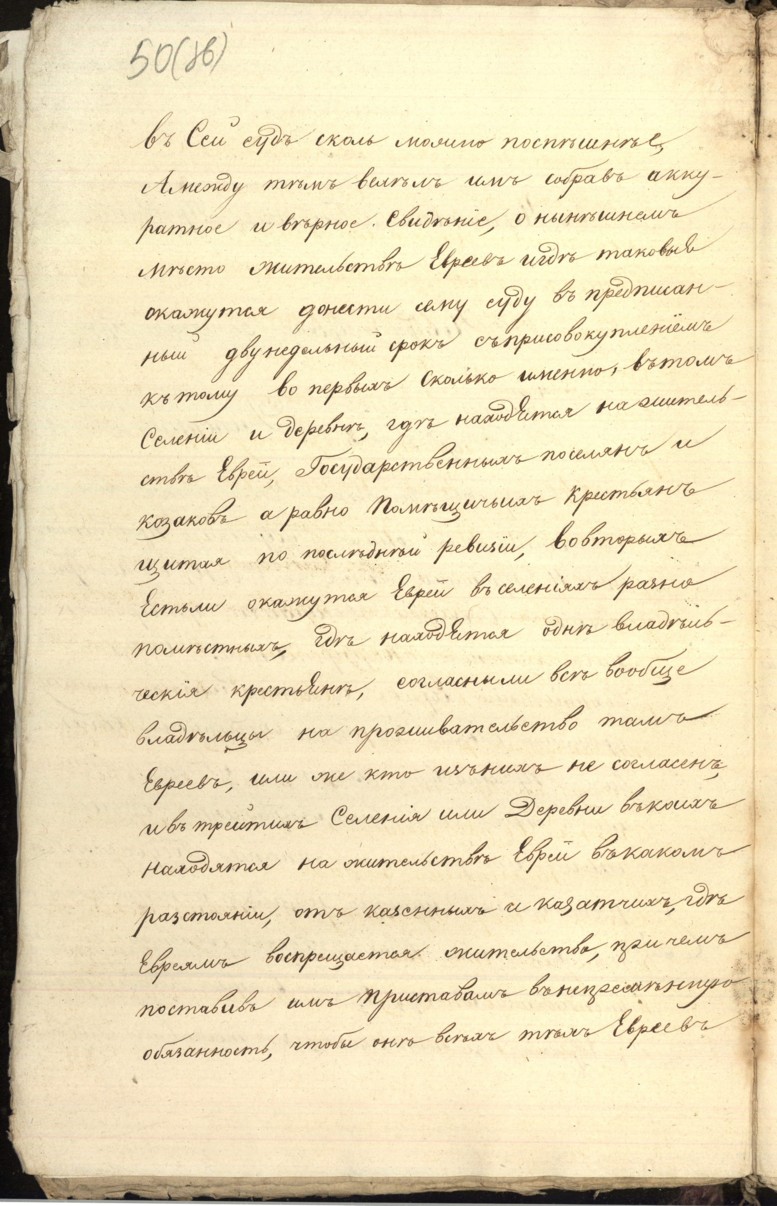 50(зв)
въ Сей судъ сколь можно поспѣшнѣе,
Амежду тѣмъ велѣлъ имъ собравъ акку-
ратное и вѣрное Свидѣніе, о нынѣшнемъ
мѣсто жительствѣ Евреевъ игдѣ таковые
окажутся донести сему суду въ предписан-
ный двунедельный срокъ съприсовокупленіемъ
къ тому во первыхъ сколько именно, вътомъ
Селеніи и деревнѣ, гдѣ находятся нажитель-
ствѣ Еврей, Государственныхъ поселянъ и
козаковъ а равно Помѣщичьихъ крестьянъ
щитая по послѣдней ревизіи, вовторыхъ
Естьли окажутся Еврей въселеніяхъ разно
помѣстныхъ, гдѣ находятся однѣ владѣль-
ческія крестьянѣ, согласныли всѣ вообще
владѣльцы на проживательство тамъ
Евреевъ, или же кто изънихъ не согласенъ,
ивъ третихъ Селенія или Деревни въкоихъ
находятся на жительствѣ Еврей въкакомъ
разстояніи, отъ казенныхъ и казатчихъ, гдѣ
Евреямъ воспрещается жительство, причемъ
поставивъ имъ Приставамъ внепремѣнную
обязанность, чтобы онѣ всѣхъ тѣхъ Евреевъ